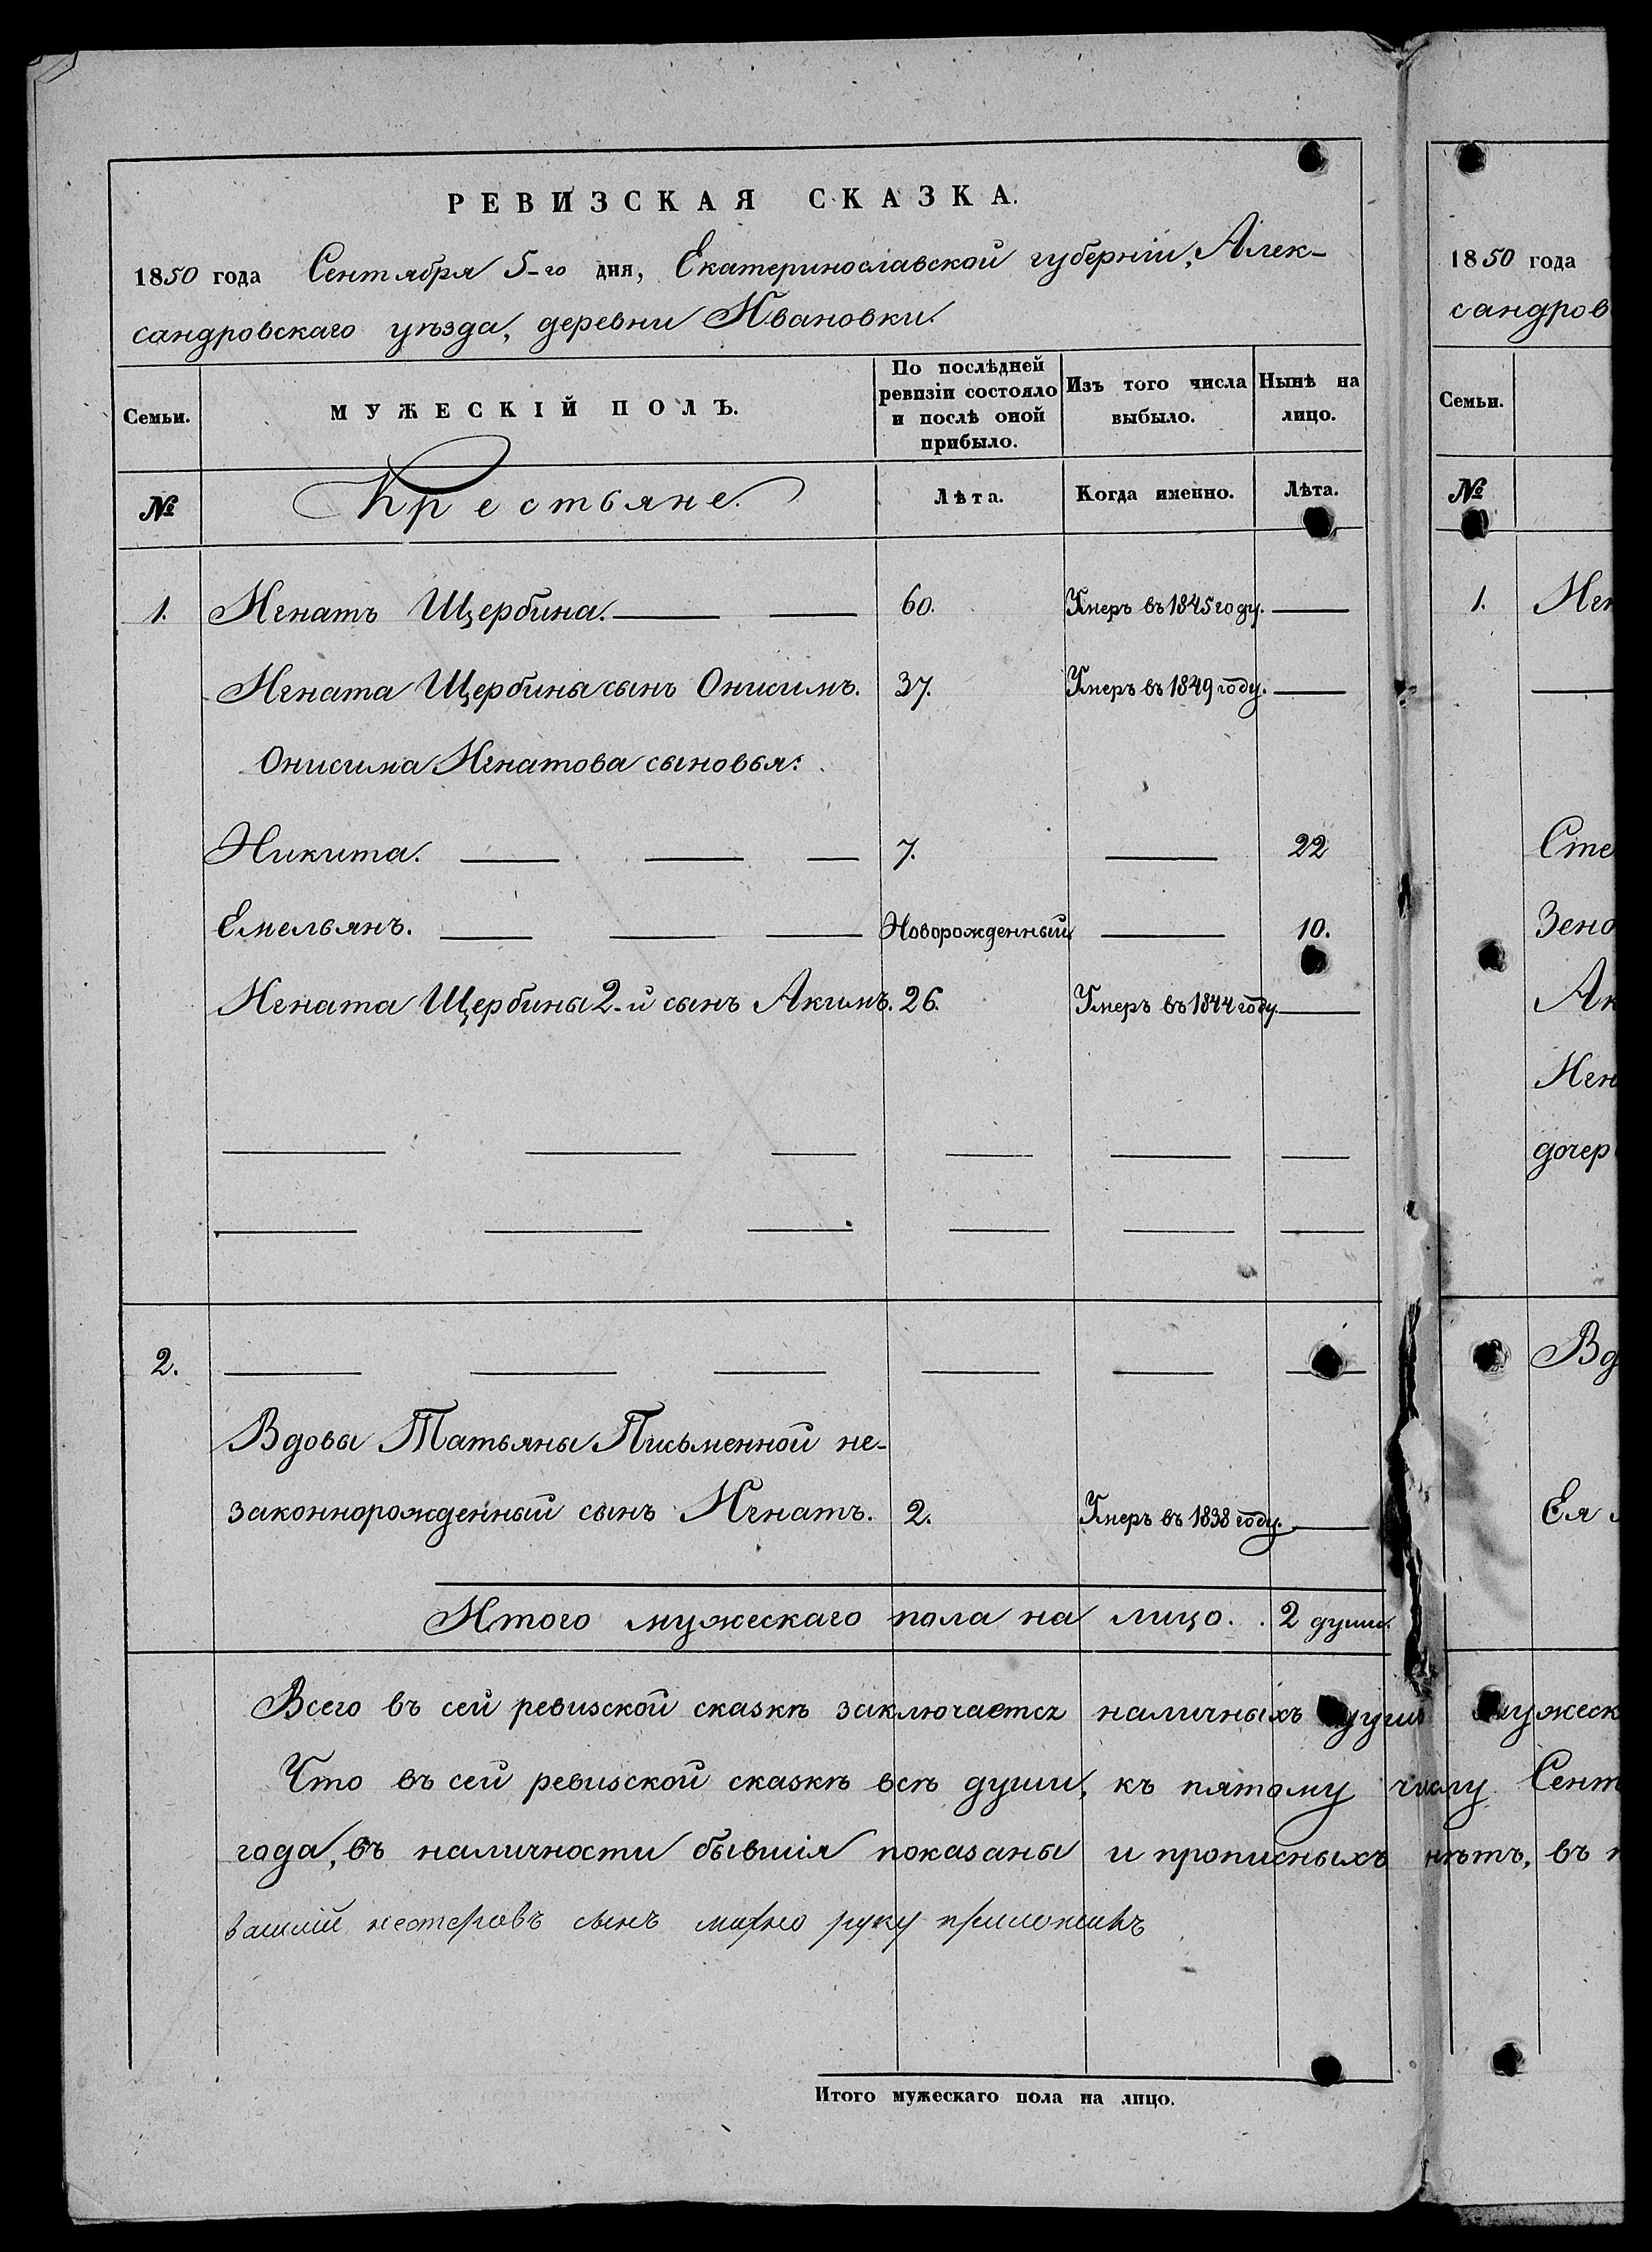 РЕВИЗСКАЯ СКАЗКА.
1850 года Сентября 5-го дня, Екатеринославской губерніи, Алек-
сандровскаго уѣзда, деревни Ивановки.
Семьи. МУЖЕСКІЙ ПОЛЪ. По послѣдней ревизіи состояло и послѣ оной прибыло. Изъ того числа выбыло. Нынѣ на лицо.
№ Крестьяне. Лѣта. Когда именно. Лѣта.
1. Игнатъ Щербина. 60. Умеръ въ 1845 году.
Игната Щербины сынъ Онисимъ. 37. Умеръ въ 1849 году.
Онисима Игнатова сыновья:
Никита. 7. 22
Емельянъ. Новорожденный 10.
Игната Щербины 2-й сынъ Акимъ. 26. Умеръ въ 1844 году
2.
Вдовы Татьяны Письменной не-
законнорожденный сынъ Игнатъ. 2. Умеръ въ 1838 году.
Итого мужескаго пола на лицо. . 2 души.
Всего въ сей ревизской сказкѣ заключается наличныхъ душъ мужеск
Что въ сей ревизской сказкѣ всѣ души, къ пятому числу Сент
года, въ наличности бывшія показаны и прописныхъ нѣтъ, въ
василій нестеровъ сынъ махно руку приложилъ
Итого мужескаго пола на лицо.
1850 года
сандров
Семьи.
№
1. Игн
Сте
Зено
Ак
Игн
дочер
Вд
Ея